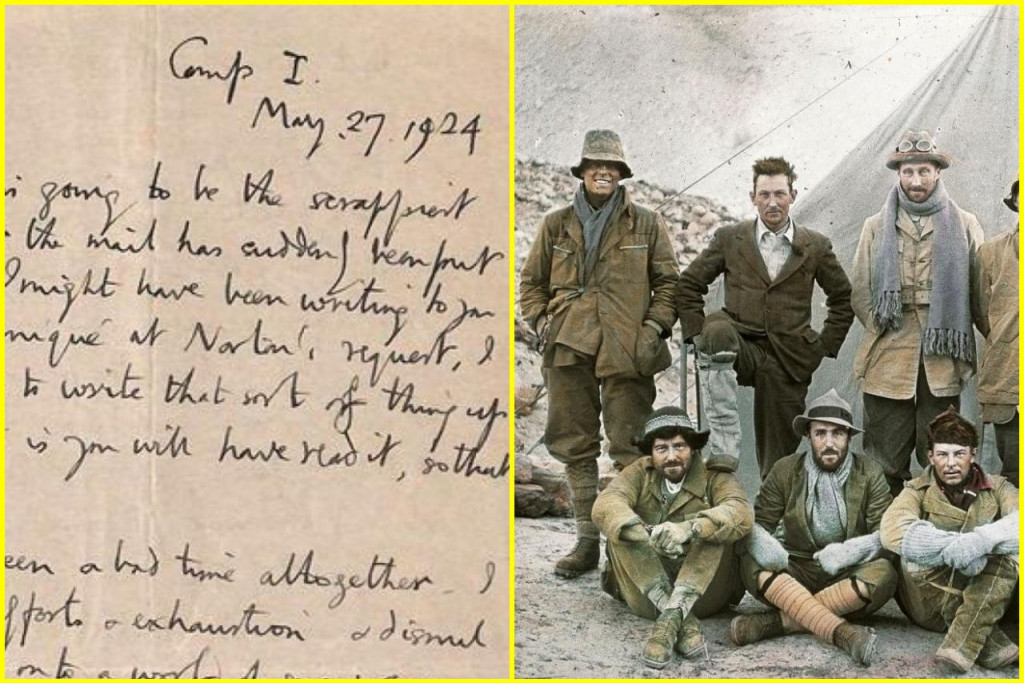 Camp I.
May.27.1924
going to be the scrappiest
the mail has suddenly been put
I might have been writing to you
nique at Norton's request, I
to write that sort of thing up
is you will have read it, so that
een a bad time altogether. I
fforts & exhaustion & dismal
onto a world of